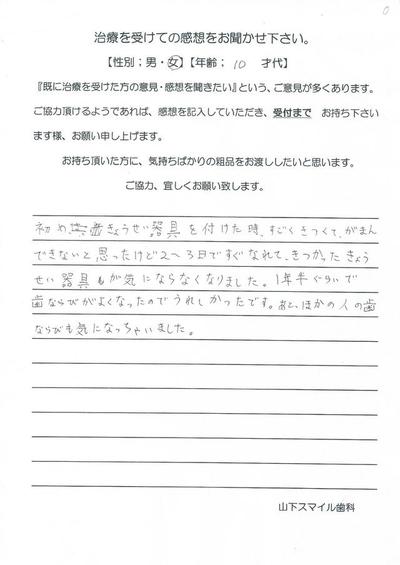 0
治療を受けての感想をお聞かせ下さい。
【性別；男・女】【年齢； 10 才代】
『既に治療を受けた方の意見・感想を聞きたい』という、ご意見が多くあります。
ご協力頂けるようであれば、感想を記入していただき、受付まで お持ち下さい
ます様、お願い申し上げます。
お持ち頂いた方に、気持ちばかりの粗品をお渡ししたいと思います。
ご協力、宜しくお願い致します。
初めきょうせい器具を付けた時、すごくきつくて、がまん
できないと思ったけど2〜3日ですぐなれて、きつかったきょう
せい器具もが気にならなくなりました。1年半ぐらいで
歯ならびがよくなったのでうれしかったです。あと、ほかの人の歯
ならびも気になっちゃいました。
山下スマイル歯科